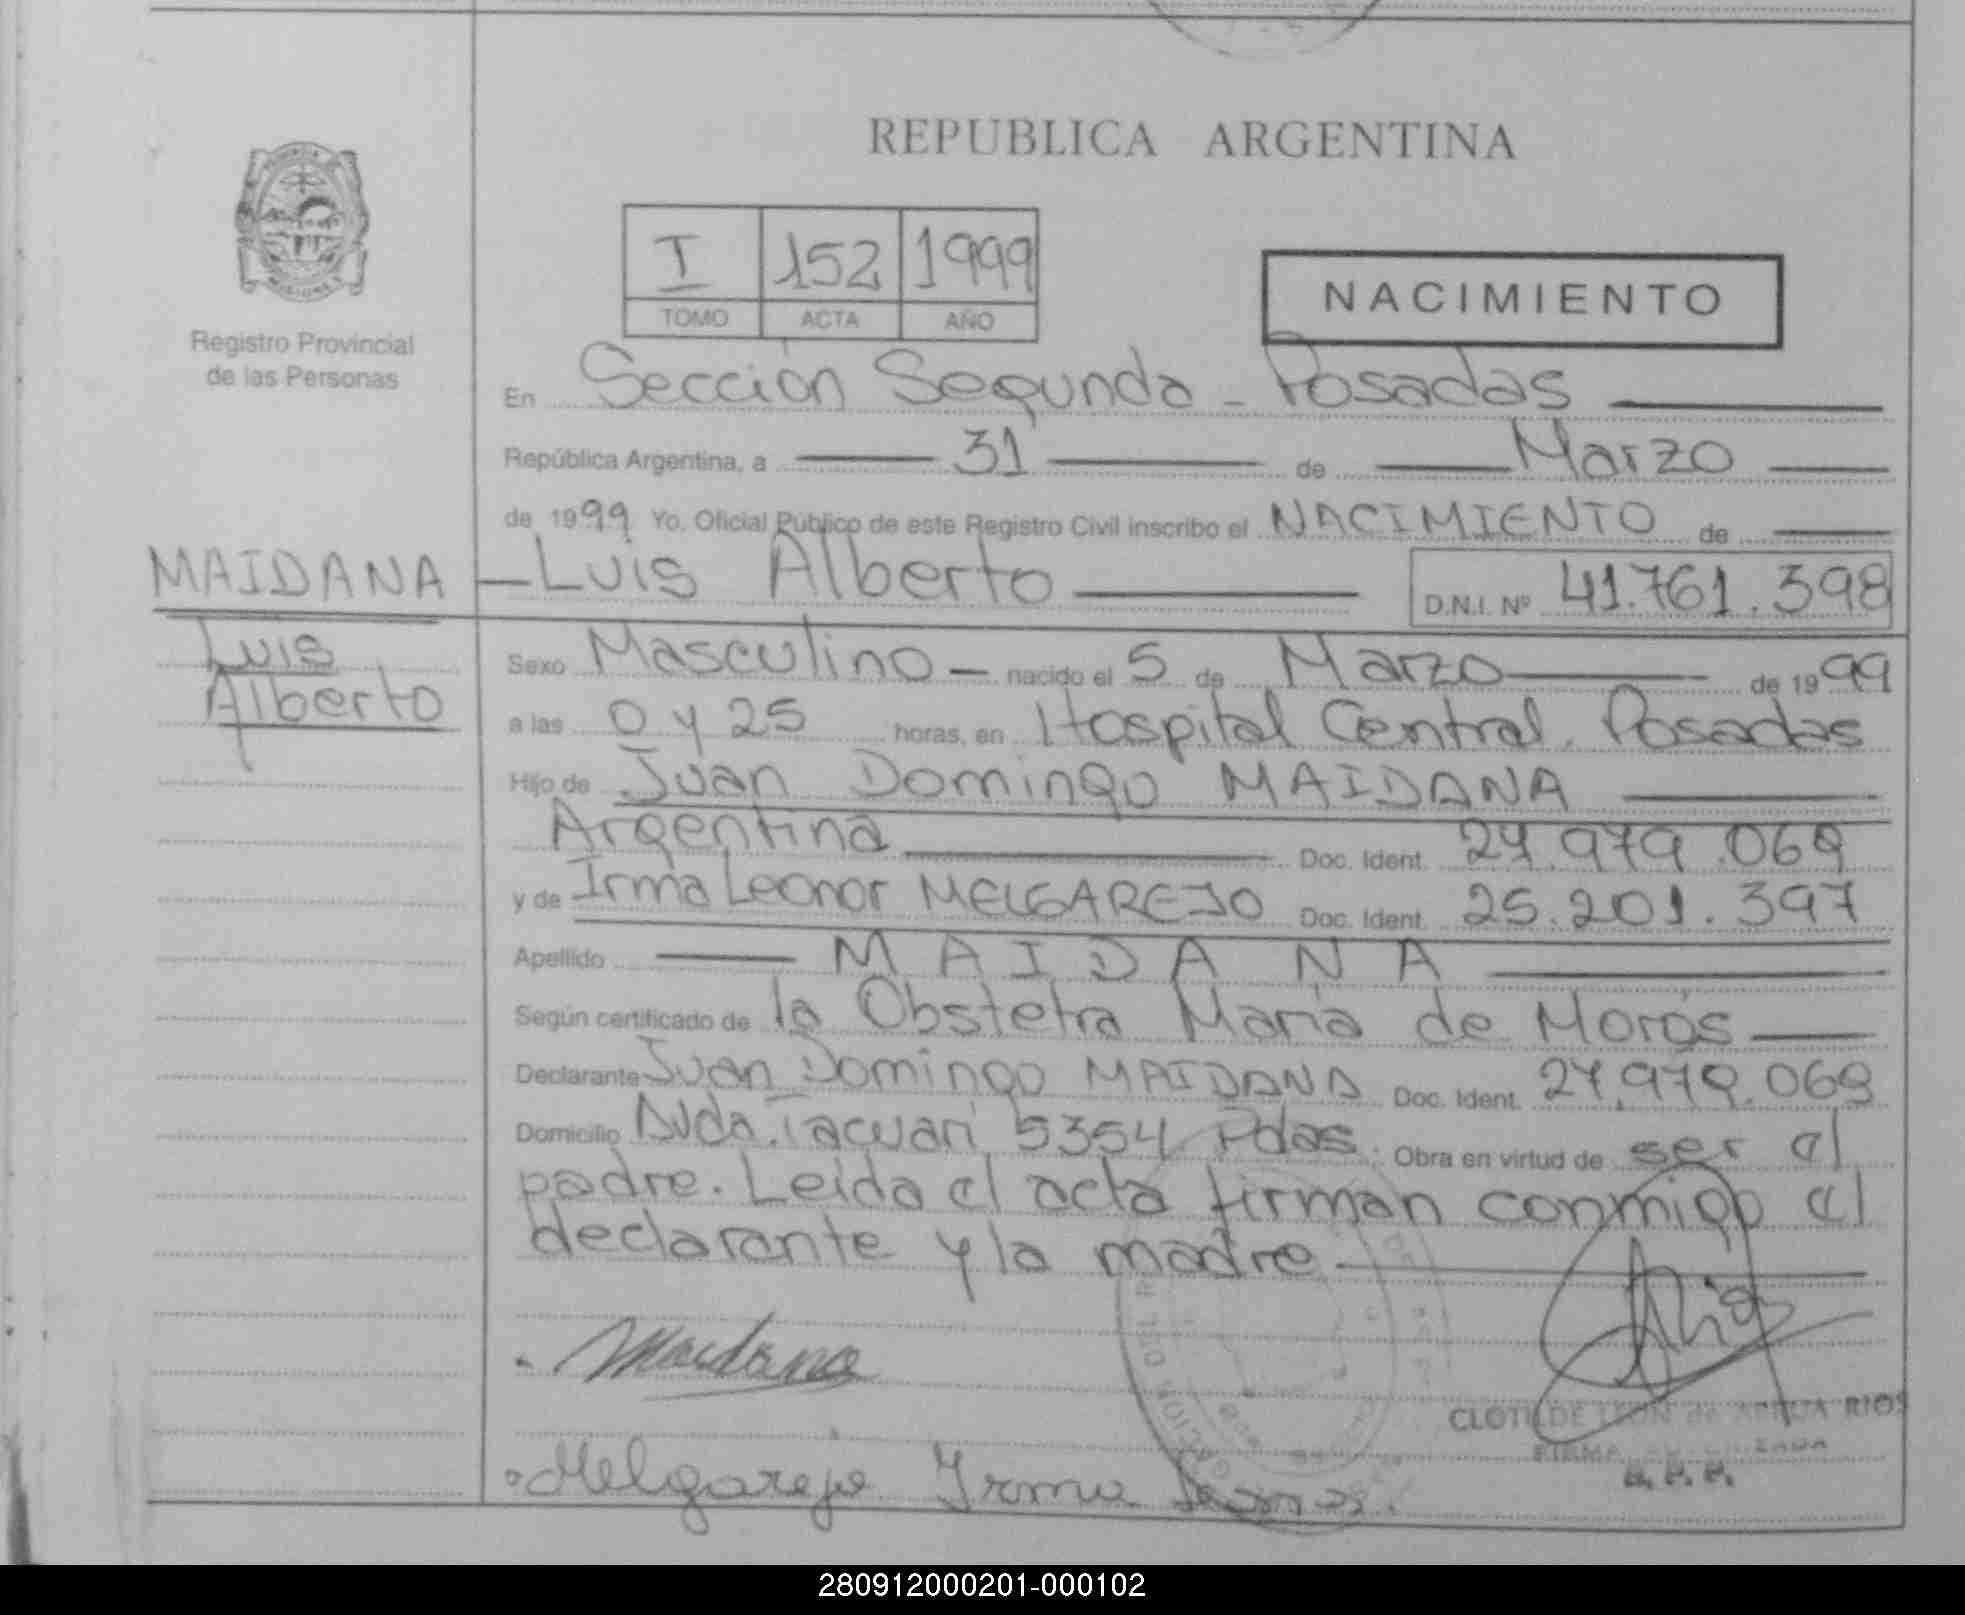 REPUBLICA ARGENTINA
I 152 1999
TOMO ACTA AÑO
NACIMIENTO
Registro Provincial
de las Personas
En Sección Segunda - Posadas
República Argentina, a 31 de Marzo
de 1999 Yo, Oficial Público de este Registro Civil inscribo el NACIMIENTO de
MAIDANA Luis Alberto D.N.I. Nº 41.761.398
Luis
Alberto
Sexo Masculino nacido el 5 de Marzo de 1999
a las 0 y 25 horas, en Hospital Central. Posadas
Hijo de Juan Domingo MAIDANA
Argentina Doc. Ident. 27.979.069
y de Irma Leonor MELGAREJO Doc. Ident. 25.201.397
Apellido MAIDANA
Según certificado de la Obstetra María de Morós
Declarante Juan Domingo MAIDANA Doc. Ident. 27.979.069
Domicilio Avda. Tacuarí 5354 Pdas. Obra en virtud de ser el
padre. Leida el acta firman conmigo el
declarante y la madre
Maidana
CLOTILDE LEON de ARRUA RIOS
FIRMA AUTORIZADA
R. P. P.
Melgarejo Irma Leonor.
280912000201-000102